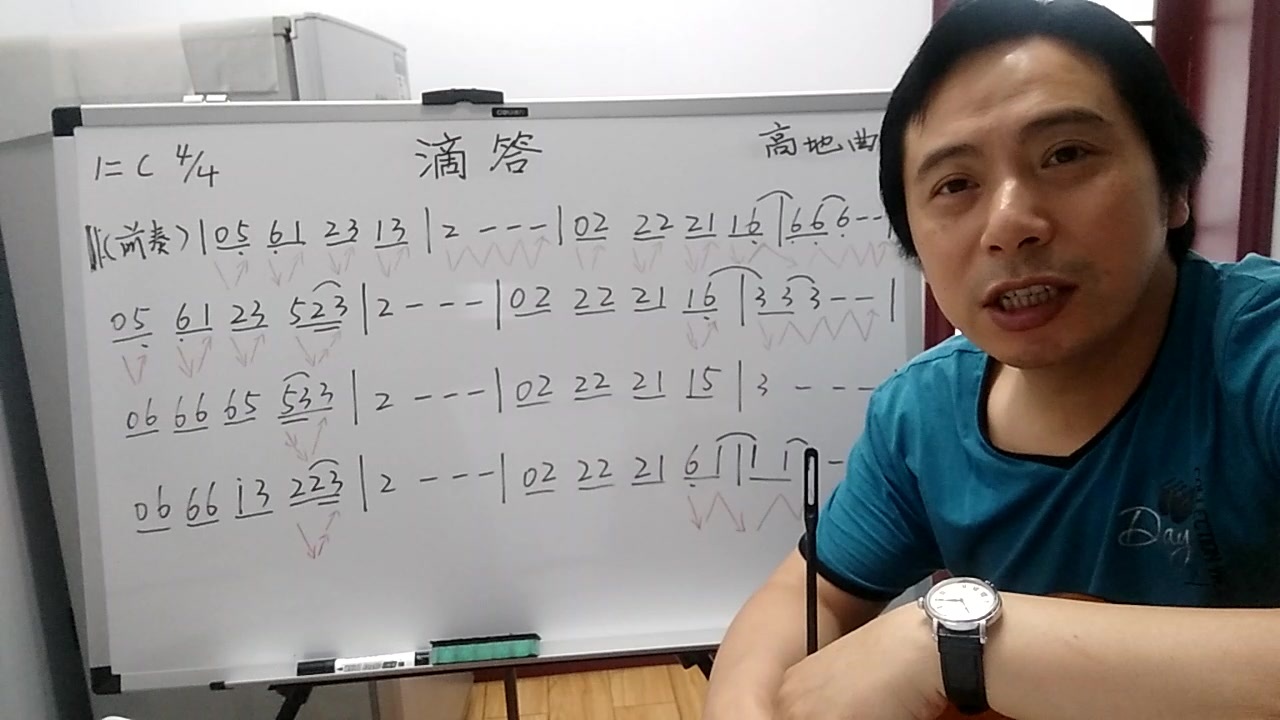 1=C 4/4 滴答 高地曲
‖:(前奏)|05 61 23 13|2---|02 22 21 16|666--|
05 61 23 523|2---|02 22 21 16|333--|
06 66 65 533|2---|02 22 21 15|3---
06 66 13 223|2---|02 22 21 61|11-
Day